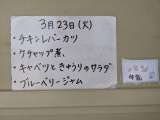 3月23日(火)
・チキンレバーカツ
・ケチャップ煮
・キャベツときゅうりのサラダ
・ブルーベリージャム